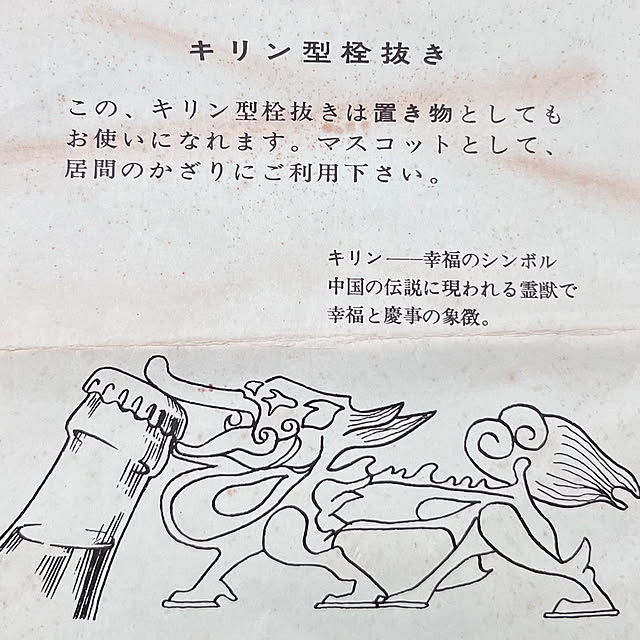 キリン型栓抜き
この、キリン型栓抜きは置き物としても
お使いになれます。マスコットとして、
居間のかざりにご利用下さい。
キリン——幸福のシンボル
中国の伝説に現われる霊獣で
幸福と慶事の象徴。